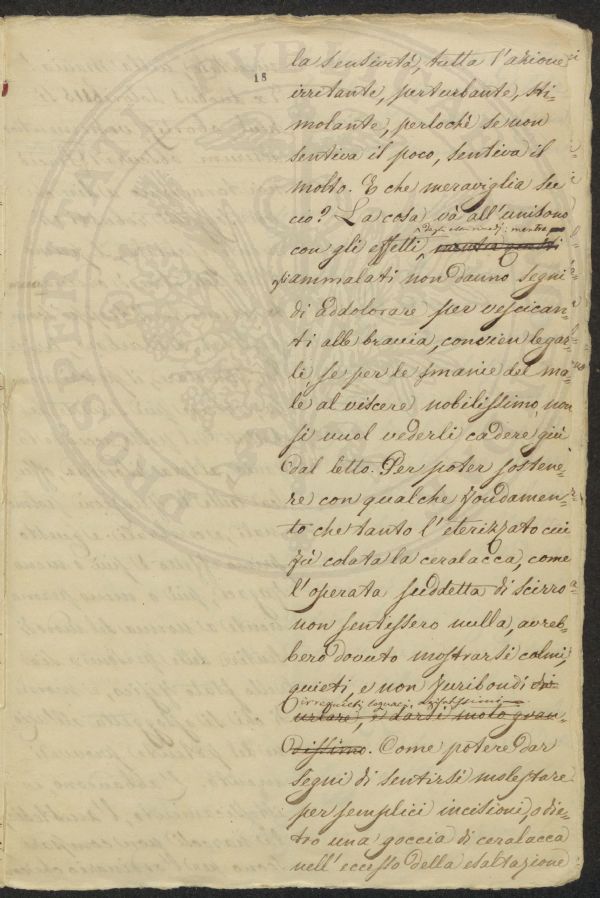 18
la sensività, tutta l'azione
irritante, perturbante, sti-
molante, perlochè se non
sentiva il poco, sentiva il
molto. E che meraviglia sie
ciò? La cosa và all'unisono
degli altri rimedj; mentre
con gli effetti, mentre questi
gli ammalati non danno segni
di addolorare per vescican-
ti alle braccia, convien legar-
li se per le smanie del ma-
le al viscere nobilissimo, non
si vuol vederli cadere giù
dal letto. Per poter sostene-
re con qualche fondamen-
to che tanto l'eterizzato cui
fù colata la ceralacca, come
l'operata suddetta di scirro
non sentissero nulla, avreb-
bero dovuto mostrarsi calmi,
quieti, e non furibondi di
irrequieti, loquaci, agitatissimi
urlare, e darsi moto gran-
dissimo. Come potere dar
segni di sentirsi molestare
per semplici incisioni, o die-
tro una goccia di ceralacca
nell'eccesso della esaltazione